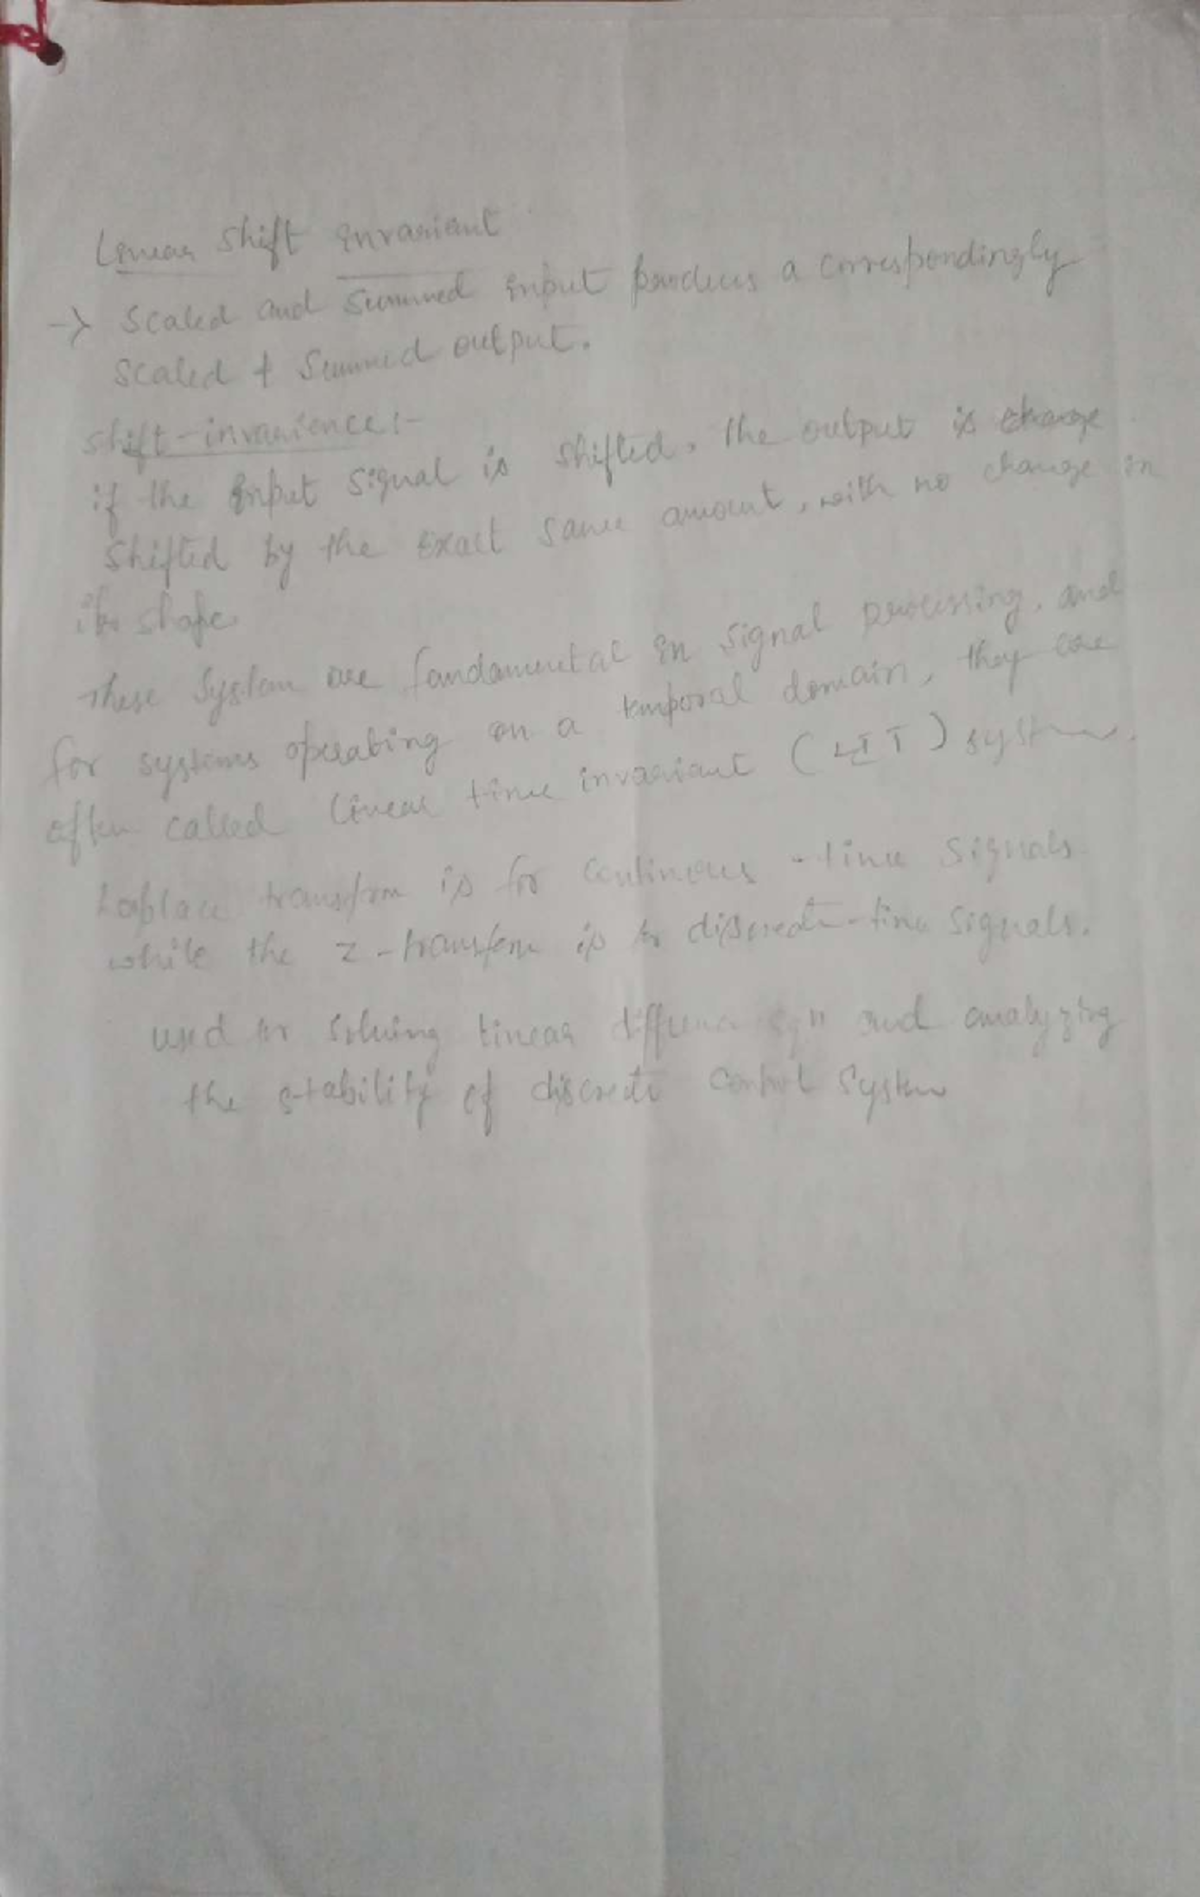 Linear shift invariant
→ Scaled and Summed input produces a correspondingly
Scaled + Summed output.
Shift-invarience:-
if the input signal is shifted, the output is change
shifted by the exact same amount, with no change in
its shape
These System are fandamental in signal processing, and
for systems operating on a temporal domain, they are
often called linear time invariant (LTI) system.
Laplace transform is for continous-time signals
while the z-transform is for discreate-time signals.
used for solving linear difference eqn and analyzing
the stability of discrete control system